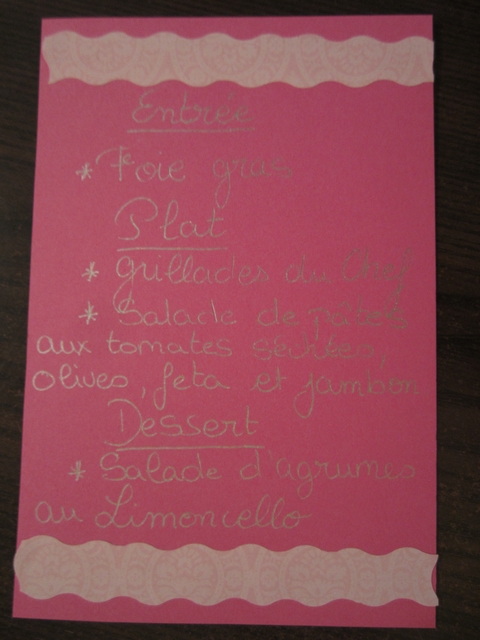 Entrée
* Foie gras
Plat
* Grillades du Chef
* Salade de pâtes
aux tomates séchées,
olives, feta et jambon
Dessert
* Salade d'agrumes
au Limoncello